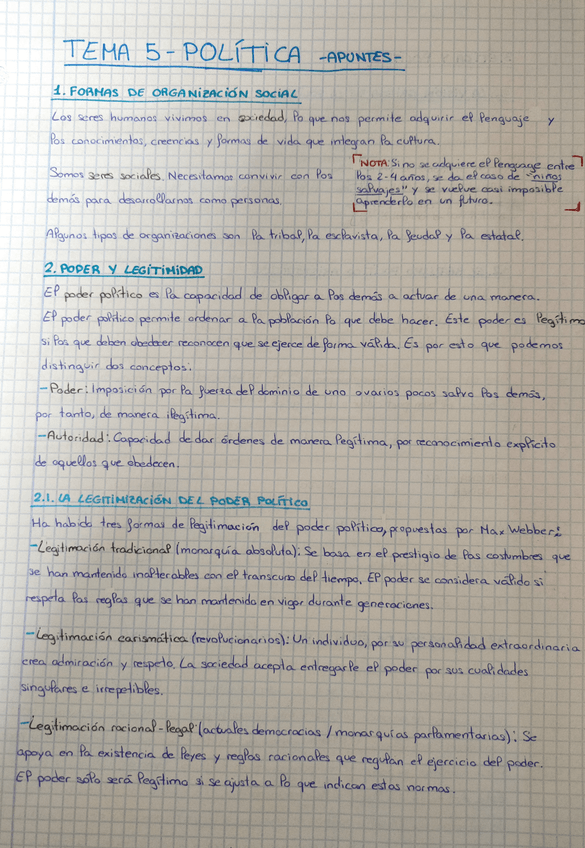 TEMA 5 - POLÍTICA - APUNTES -
1. FORMAS DE ORGANIZACIÓN SOCIAL
Los seres humanos vivimos en sociedad, lo que nos permite adquirir el lenguaje y
los conocimientos, creencias y formas de vida que integran la cultura.
Somos seres sociales. Necesitamos convivir con los
demás para desarrollarnos como personas.
NOTA: Si no se adquiere el lenguaje entre
los 2-4 años, se da el caso de "niños
salvajes" y se vuelve casi imposible
aprenderlo en un futuro.
Algunos tipos de organizaciones son la tribal, la esclavista, la feudal y la estatal.
2. PODER Y LEGITIMIDAD
El poder político es la capacidad de obligar a los demás a actuar de una manera.
El poder político permite ordenar a la población lo que debe hacer. Este poder es legítimo
si los que deben obedecer reconocen que se ejerce de forma válida. Es por esto que podemos
distinguir dos conceptos:
- Poder: Imposición por la fuerza del dominio de uno o varios pocos salvo los demás,
por tanto, de manera ilegítima.
- Autoridad: Capacidad de dar órdenes de manera legítima, por reconocimiento explícito
de aquellos que obedecen.
2.1. LA LEGITIMIZACIÓN DEL PODER POLÍTICO
Ha habido tres formas de legitimación del poder político, propuestas por Max Webber:
- Legitimación tradicional (monarquía absoluta): Se basa en el prestigio de las costumbres que
se han mantenido inalterables con el transcurso del tiempo. El poder se considera válido si
respeta las reglas que se han mantenido en vigor durante generaciones.
- Legitimación carismática (revolucionarios): Un individuo, por su personalidad extraordinaria
crea admiración y respeto. La sociedad acepta entregarle el poder por sus cualidades
singulares e irrepetibles.
- Legitimación racional-legal (actuales democracias / monarquías parlamentarias): Se
apoya en la existencia de leyes y reglas racionales que regulan el ejercicio del poder.
El poder sólo será legítimo si se ajusta a lo que indican estas normas.